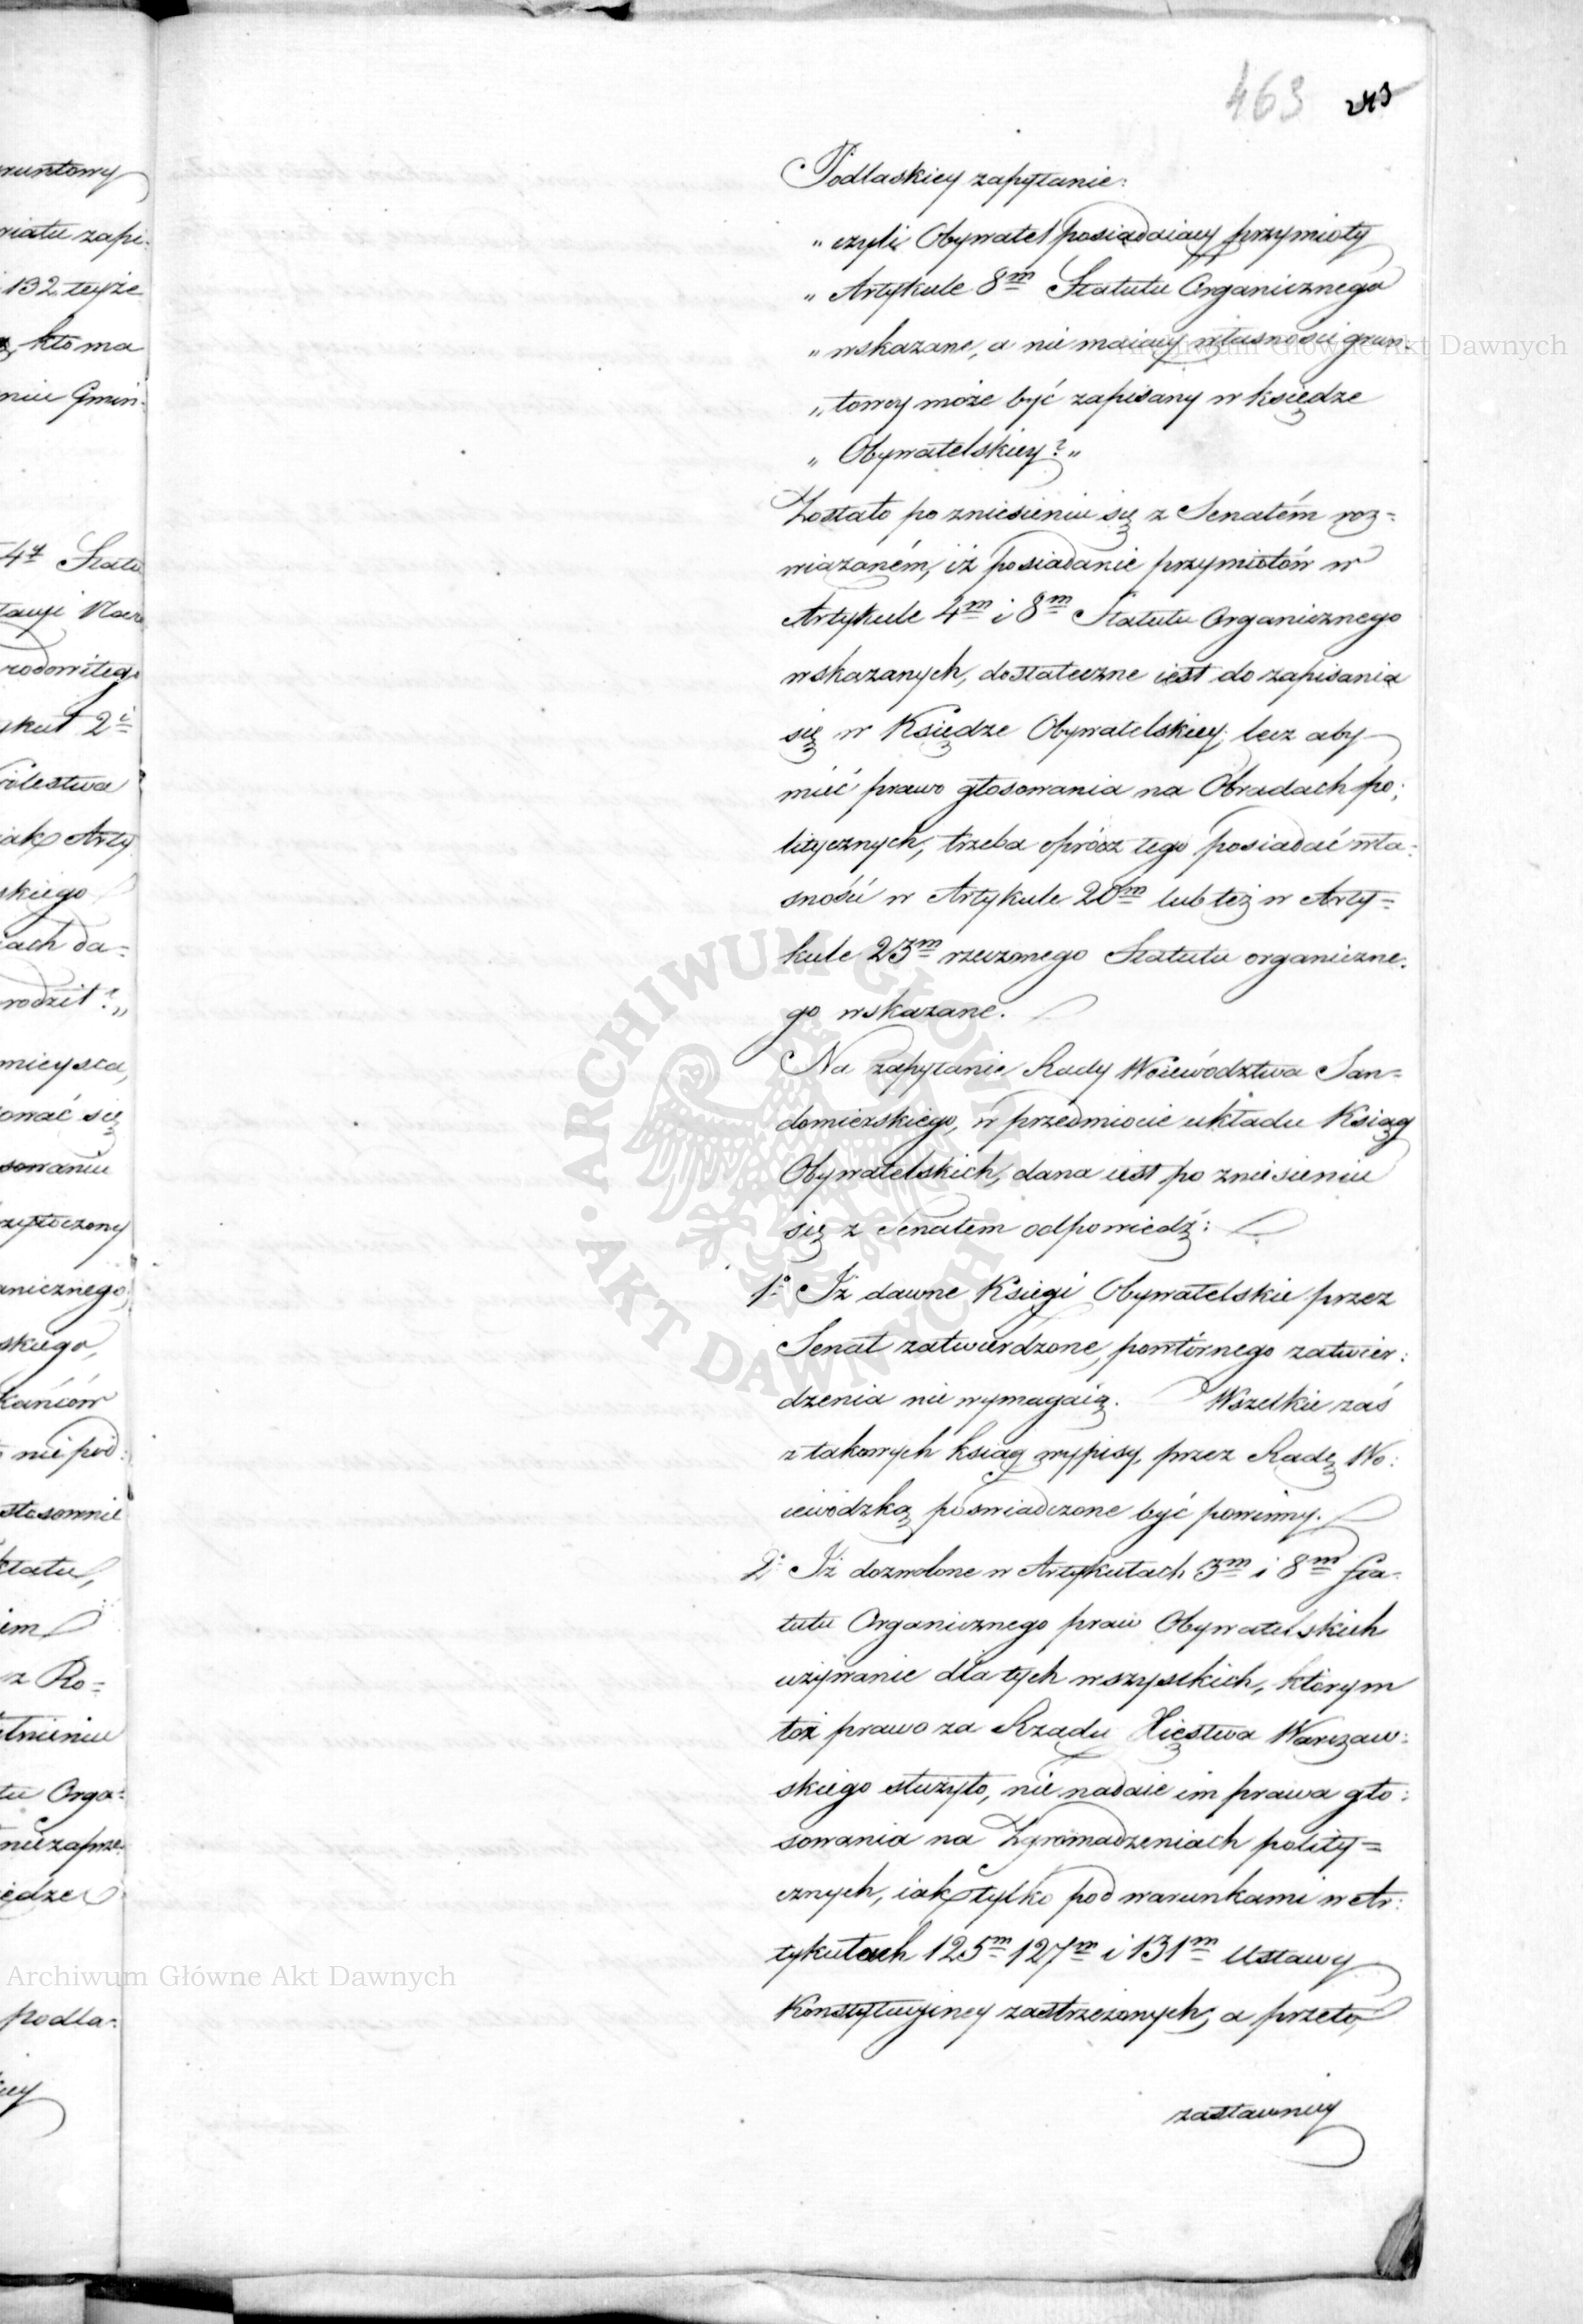 463 243
Podlaskiey zapytanie:
„ czyli Obywatel posiadaiący przymioty
„ Artykule 8m Statutu Organicznego
„ wskazane, a nie maiący własności grun:
„ towey może być zapisany w księdze
„ Obywatelskiey? „
Zostało po zniesieniu się z Senatém roz=
wiązaném, iż posiadanie przymiotów w
Artykule 4m i 8m Statutu Organicznego
wskazanych, dostateczne iest do zapisania
się w Księdze Obywatelskiey; lecz aby
mieć prawo głosowania na Obradach po:
litycznych, trzeba oprócz tego posiadać wła:
sność w Artykule 20m lub też w Arty=
kule 23m rzeczonego Statutu organiczne:
go wskazane.
Na zapytanie Rady Woiewództwa San=
domierskiego, w przedmiocie układu Ksiąg
Obywatelskich, dana iest po zniesieniu
się z Senatem odpowiedź:
1o Iż dawne Księgi Obywatelskie przez
Senat zatwierdzone, powtórnego zatwier:
dzenia nie wymagaią. Wszelkie zaś
z takowych ksiąg wypisy, przez Radę Wo:
iewódzką poświadczone być powinny.
2o Iż dozwolone w Artykułach 3m i 8m Sta:
tutu Organicznego praw Obywatelskich
używanie dla tych wszystkich, którym
toż prawo za Rządu Xięstwa Warszaw:
skiego służyło, nie nadaie im prawa gło:
sowania na Zgromadzeniach polity=
cznych, iak tylko pod warunkami w Ar:
tykułach 125m 127m i 131m Ustawy
Konstytucyiney zastrzeżonych; a przeto,
zastawnicy
runtowy
wiatu zapi:
132 teyże
kto ma
niu Gmin:
4t Statu
rodowitego
ykuł 2i
iak Arty
skiego
iach da=
rodził? „
mieysca,
ować się
sowaniu
zytoczony
anicznego,
skiego,
kańców
nie pod:
stosownie
tatu,
iem
z Ro=
łnieniu
tu Orga:
niezaprze:
iędze
podla:
iey
Archiwum Główne Akt Dawnych
Archiwum Główne Akt Dawnych
ARCHIWUM GŁÓWNE · AKT DAWNYCH ·